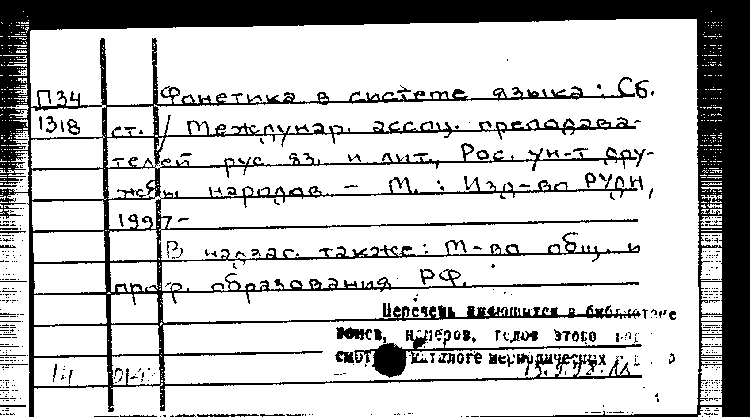 П34 Фонетика в системе языка : Сб.
1318 ст. / Междунар. ассоц. преподава-
телей рус. яз. и лит., Рос. ун-т дру-
жбы народов. – М. : Изд-во РУДН,
1997-
В надзаг. также: М-во общ. и
проф. образования РФ.
Перечень имеющихся в библиотеке
томов, номеров, годов этого
каталоге периодических
14